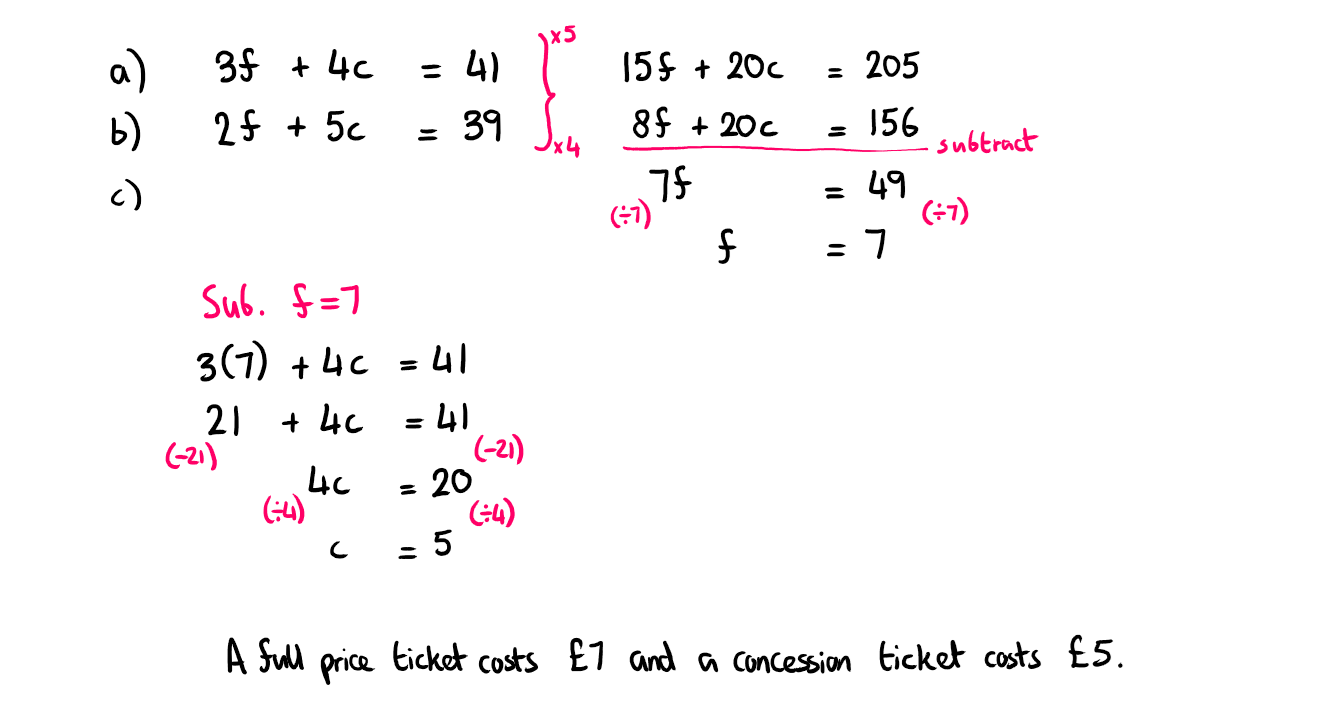 a) 3f + 4c = 41 ×5 15f + 20c = 205
b) 2f + 5c = 39 ×4 8f + 20c = 156 subtract
c) 7f = 49
(÷7) (÷7)
f = 7
Sub. f=7
3(7) + 4c = 41
21 + 4c = 41
(-21) (-21)
4c = 20
(÷4) (÷4)
c = 5
A full price ticket costs £7 and a concession ticket costs £5.